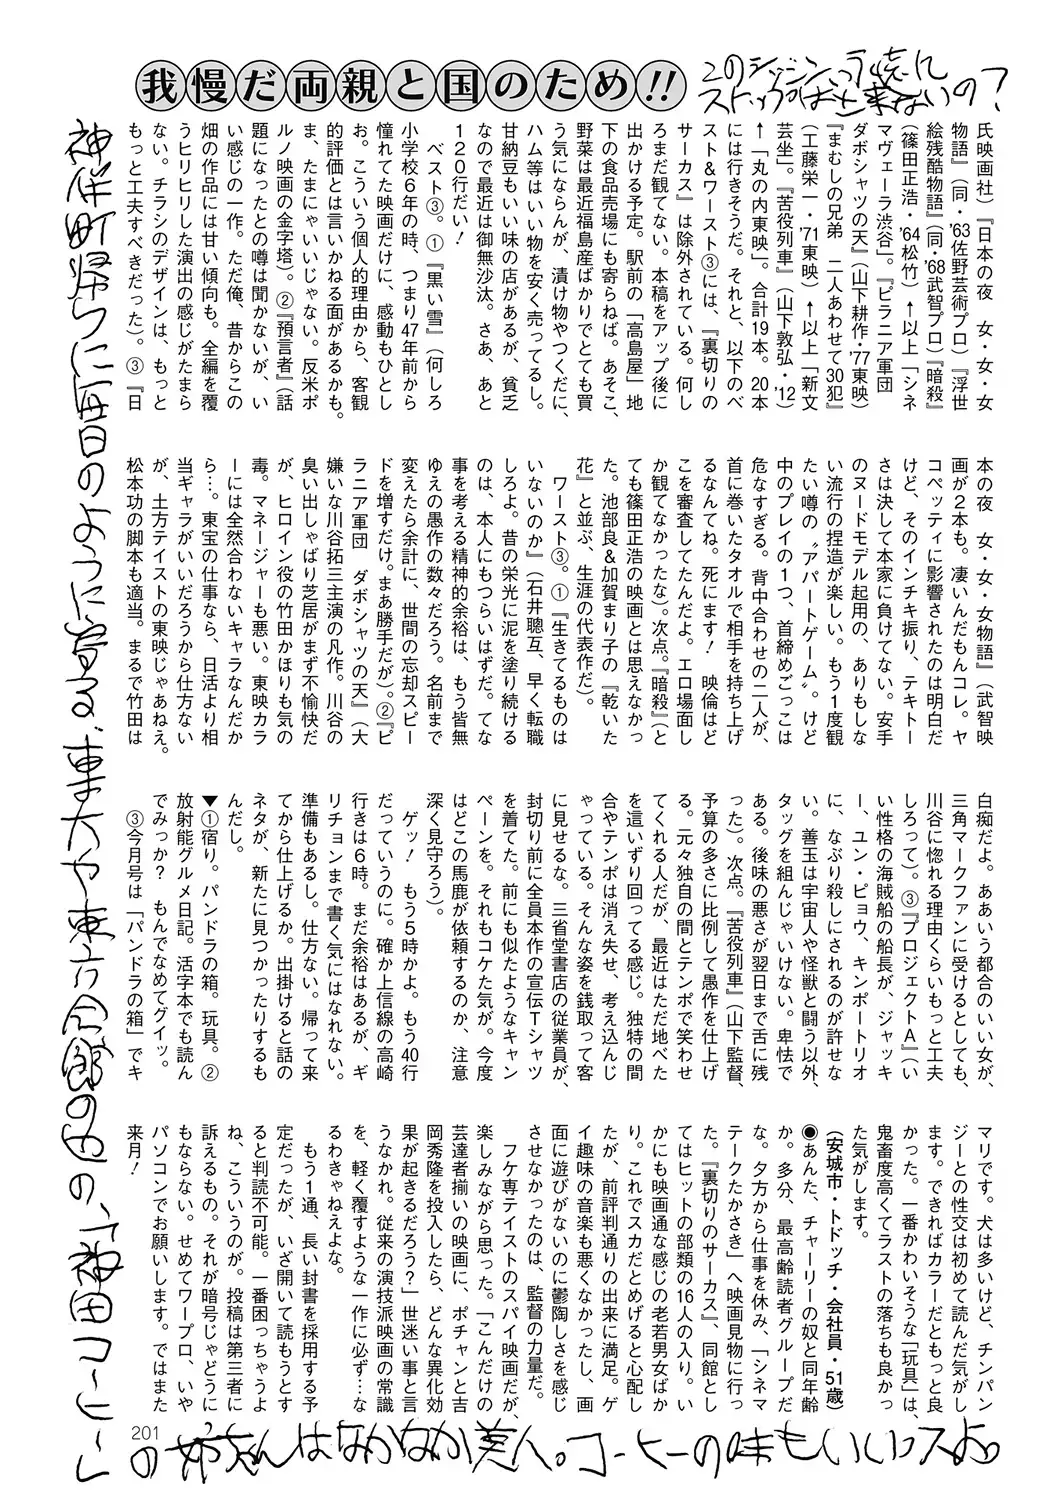 我慢だ両親と国のため!!
氏映画社）『日本の夜　女・女・女
物語』（同・'63佐野芸術プロ）『浮世
絵残酷物語』（同・'68武智プロ）『暗殺』
（篠田正浩・'64松竹）↑以上「シネ
マヴェーラ渋谷」。『ピラニア軍団
ダボシャツの天』（山下耕作・'77東映）
『まむしの兄弟　二人あわせて30犯』
（工藤栄一・'71東映）↑以上「新文
芸坐」。『苦役列車』（山下敦弘・'12）
↑「丸の内東映」。合計19本。20本
には行きそうだ。それと、以下のベ
スト&ワースト③には、『裏切りの
サーカス』は除外されている。何し
ろまだ観てない。本稿をアップ後に
出かける予定。駅前の「高島屋」地
下の食品売場にも寄らねば。あそこ、
野菜は最近福島産ばかりでとても買
う気にならんが、漬け物やつくだに、
ハム等はいい物を安く売ってるし。
甘納豆もいい味の店があるが、貧乏
なので最近は御無沙汰。さあ、あと
120行だい！
ベスト③。①『黒い雪』（何しろ
小学校6年の時、つまり47年前から
憧れてた映画だけに、感動もひとし
お。こういう個人的理由から、客観
的評価とは言いかねる面があるかも。
ま、たまにゃいいじゃない。反米ポ
ルノ映画の金字塔）。②『預言者』（話
題になったとの噂は聞かないが、い
い感じの一作。ただ俺、昔からこの
畑の作品には甘い傾向も。全編を覆
うヒリヒリした演出の感じがたまら
ない。チラシのデザインは、もっと
もっと工夫すべきだった）。③『日
本の夜　女・女・女物語』（武智映
画が2本も。凄いんだもんコレ。ヤ
コペッティに影響されたのは明白だ
けど、そのインチキ振り、テキトー
さは決して本家に負けてない。安手
のヌードモデル起用の、ありもしな
い流行の捏造が楽しい。もう1度観
たい噂の〝アパートゲーム〟。けど
中のプレイの1つ、首締めごっこは
危なすぎる。背中合わせの二人が、
首に巻いたタオルで相手を持ち上げ
るなんてね。死にます！　映倫はど
こを審査してたんだよ。エロ場面し
か観てなかったな）。次点。『暗殺』（と
ても篠田正浩の映画とは思えなかっ
た。池部良&加賀まり子の『乾いた
花』と並ぶ、生涯の代表作だ）。
ワースト③。①『生きてるものは
いないのか』（石井聰互、早く転職
しろよ。昔の栄光に泥を塗り続ける
のは、本人にもつらいはずだ。てな
事を考える精神的余裕は、もう皆無
ゆえの愚作の数々だろう。名前まで
変えたら余計に、世間の忘却スピー
ドを増すだけ。まあ勝手だが）。②『ピ
ラニア軍団　ダボシャツの天』（大
嫌いな川谷拓三主演の凡作。川谷の
臭い出しゃばり芝居がまず不愉快だ
が、ヒロイン役の竹田かほりも気の
毒。マネージャーも悪い。東映カラ
ーには全然合わないキャラなんだか
ら…。東宝の仕事なら、日活より相
当ギャラがいいだろうから仕方ない
が、土方テイストの東映じゃあねえ。
松本功の脚本も適当。まるで竹田は
白痴だよ。ああいう都合のいい女が、
三角マークファンに受けるとしても、
川谷に惚れる理由くらいもっと工夫
しろって）。③『プロジェクトA』（い
い性格の海賊船の船長が、ジャッキ
ー、ユン・ピョウ、キンポートリオ
に、なぶり殺しにされるのが許せな
い。善玉は宇宙人や怪獣と闘う以外、
タッグを組んじゃいけない。卑怯で
ある。後味の悪さが翌日まで舌に残
った）。次点。『苦役列車』（山下監督、
予算の多さに比例して愚作を仕上げ
る。元々独自の間とテンポで笑わせ
てくれる人だが、最近はただ地べた
を這いずり回ってる感じ。独特の間
合やテンポは消え失せ、考え込んじ
ゃっている。そんな姿を銭取って客
に見せるな。三省堂書店の従業員が、
封切り前に全員本作の宣伝Tシャツ
を着てた。前にも似たようなキャン
ペーンを。それもコケた気が。今度
はどこの馬鹿が依頼するのか、注意
深く見守ろう）。
ゲッ！　もう5時かよ。もう40行
だっていうのに。確か上信線の高崎
行きは6時。まだ余裕はあるが、ギ
リチョンまで書く気にはなれない。
準備もあるし。仕方ない。帰って来
てから仕上げるか。出掛けると話の
ネタが、新たに見つかったりするも
んだし。
▼①宿り。パンドラの箱。玩具。②
放射能グルメ日記。活字本でも読ん
でみっか？　もんでなめてグイッ。
③今月号は「パンドラの箱」でキ
マリです。犬は多いけど、チンパン
ジーとの性交は初めて読んだ気がし
ます。できればカラーだともっと良
かった。一番かわいそうな「玩具」は、
鬼畜度高くてラストの落ちも良かっ
た気がします。
（安城市・トドッチ・会社員・51歳）
◉あんた、チャーリーの奴と同年齢
か。多分、最高齢読者グループだ
な。夕方から仕事を休み、「シネマ
テークたかさき」へ映画見物に行っ
た。『裏切りのサーカス』、同館とし
てはヒットの部類の16人の入り。い
かにも映画通な感じの老若男女ばか
り。これでスカだとめげると心配し
たが、前評判通りの出来に満足。ゲ
イ趣味の音楽も悪くなかったし、画
面に遊びがないのに鬱陶しさを感じ
させなかったのは、監督の力量だ。
フケ専テイストのスパイ映画だが、
楽しみながら思った。「こんだけの
芸達者揃いの映画に、ポチャンと吉
岡秀隆を投入したら、どんな異化効
果が起きるだろう？」世迷い事と言
うなかれ。従来の演技派映画の常識
を、軽く覆すような一作に必ず…な
るわきゃねえよな。
もう1通、長い封書を採用する予
定だったが、いざ開いて読もうとす
ると判読不可能。一番困っちゃうよ
ね、こういうのが。投稿は第三者に
訴えるもの。それが暗号じゃどうに
もならない。せめてワープロ、いや
パソコンでお願いします。ではまた
来月！
神保町帰りに毎日のように寄る、東大や
会館の
の、"神田コーヒー"
の姉ちゃんはなかなか美人。コーヒーの味もいいっスよ。
201